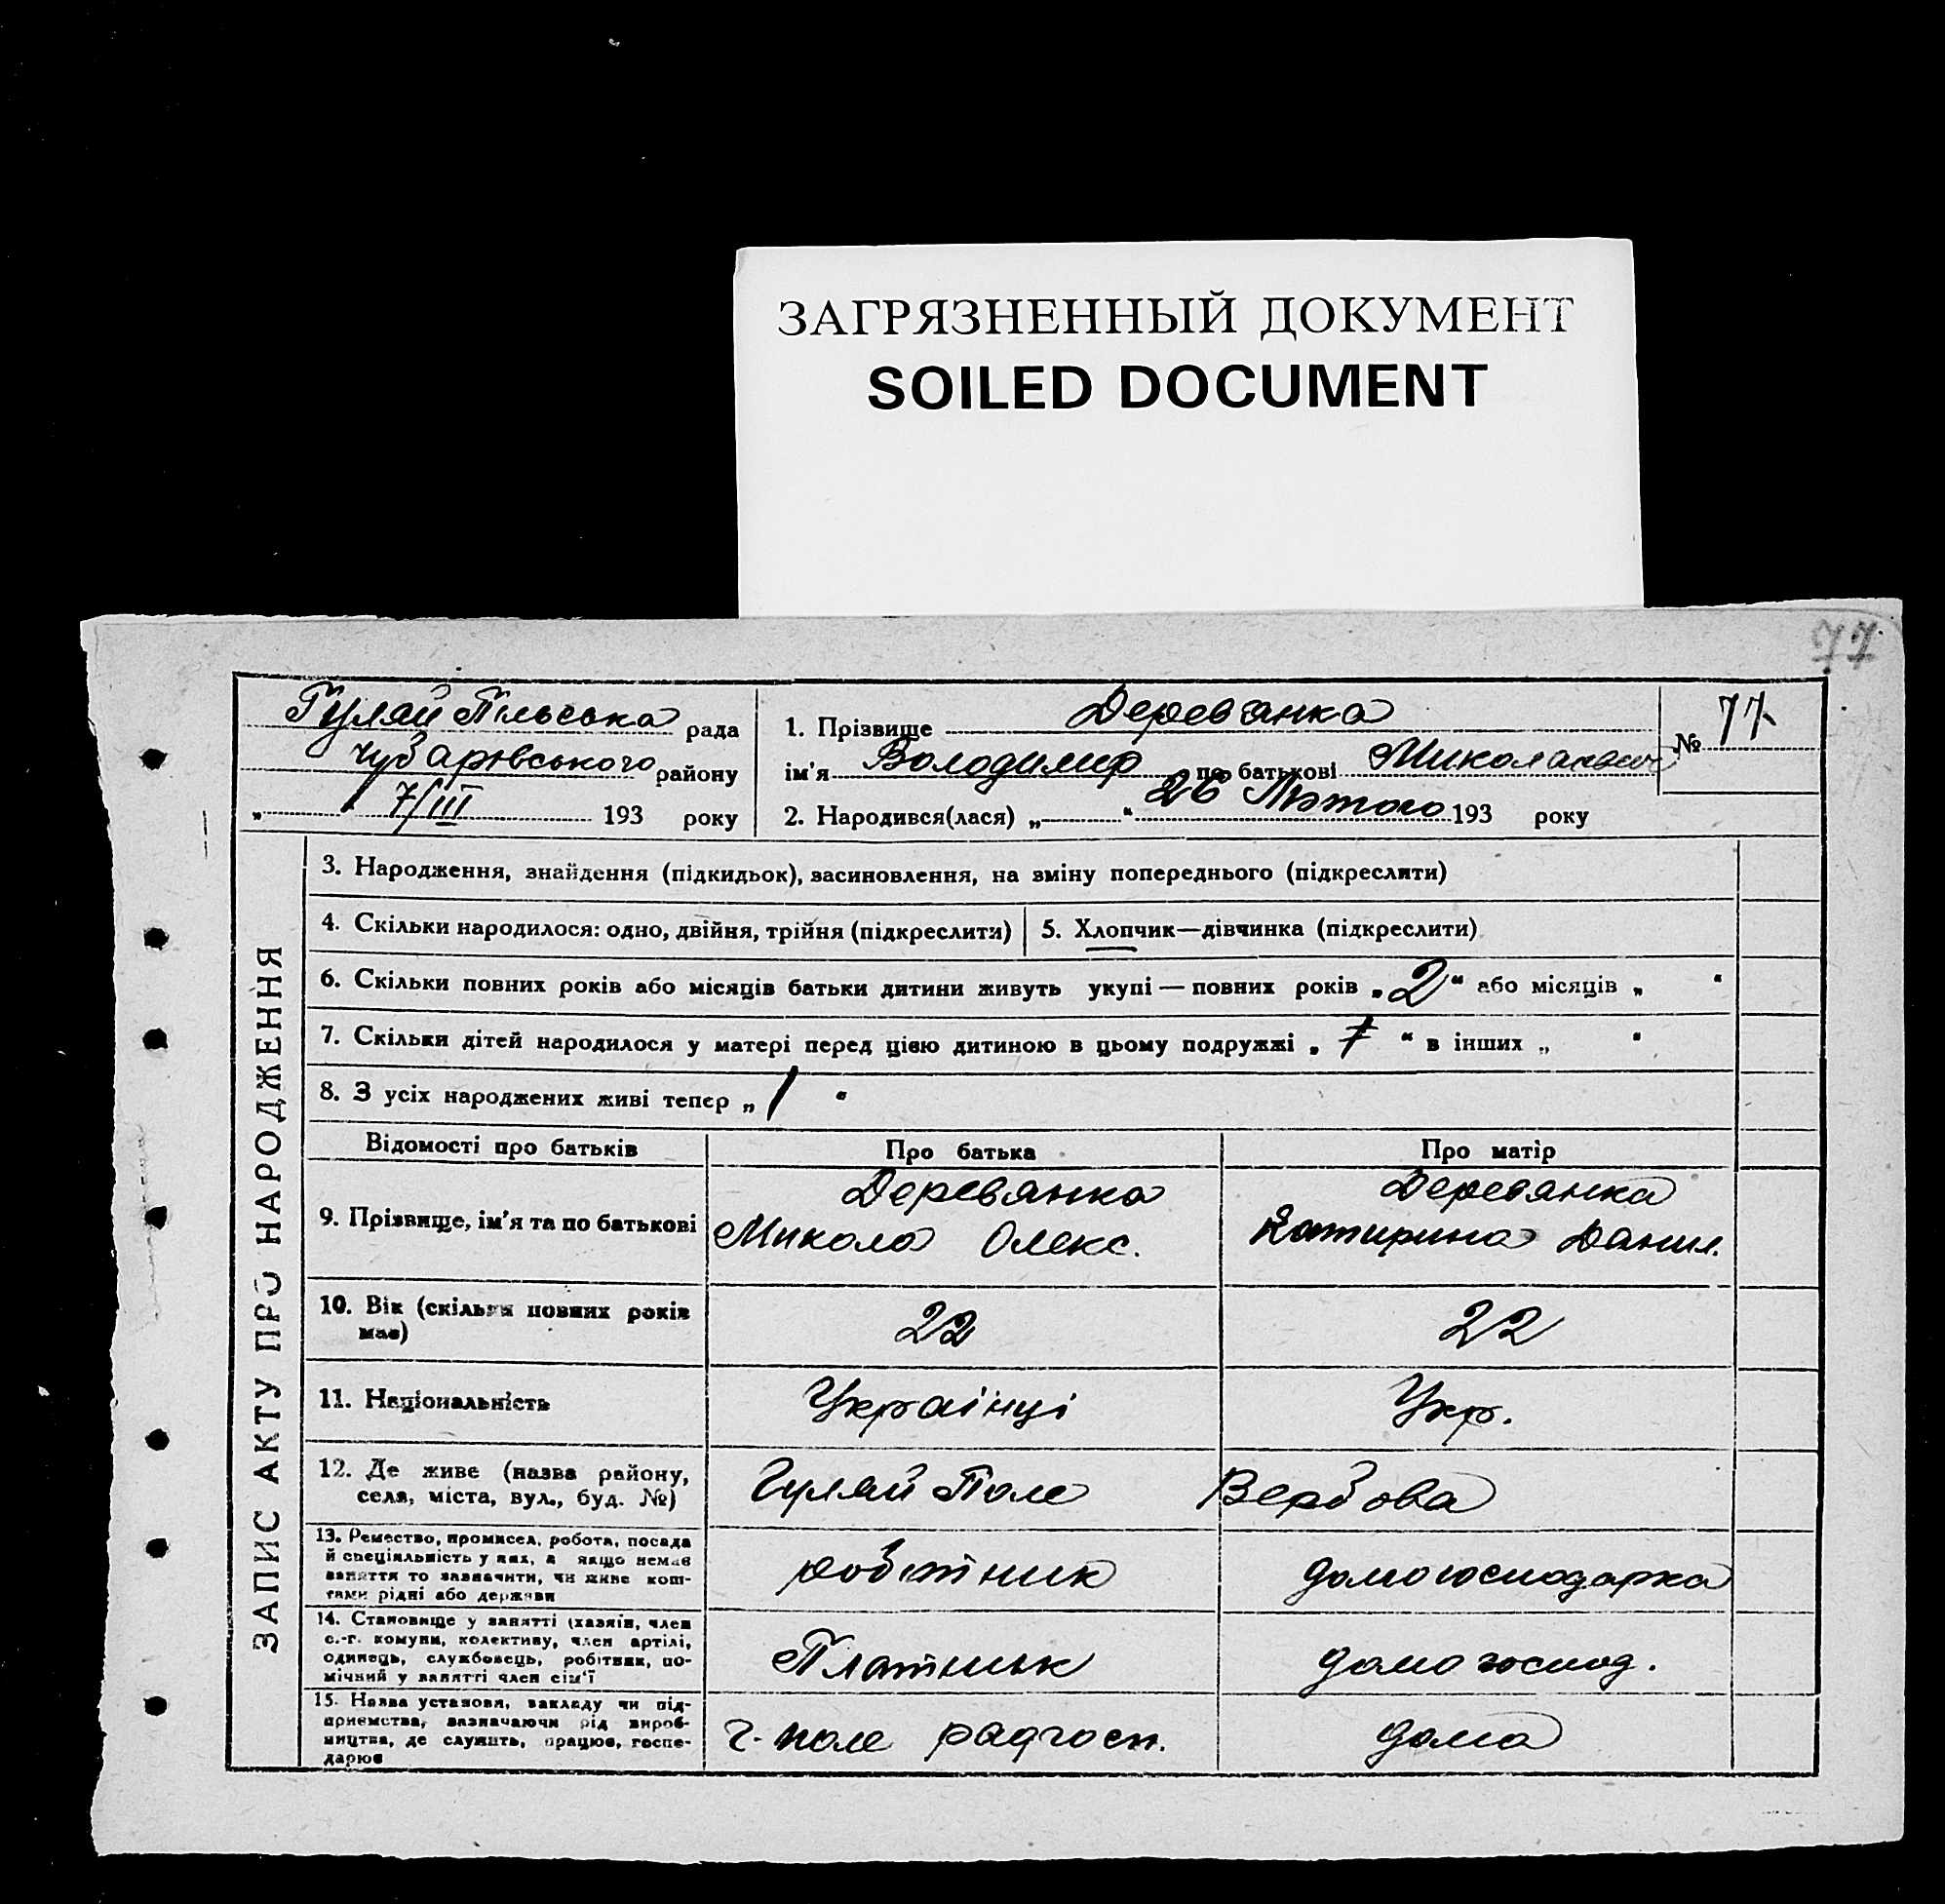 ЗАГРЯЗНЕННЫЙ ДОКУМЕНТ
SOILED DOCUMENT
77
Гуляй Пільська рада
Чубарівського району
„ 7/III 193 року
1. Прізвище Деревянко
ім'я Володимир по батькові Миколаевич
2. Народився(лася) „ “ 26 Лютого 193 року
№ 77
ЗАПИС АКТУ ПРО НАРОДЖЕННЯ
3. Народження, знайдення (підкидьок), засиновлення, на зміну попереднього (підкреслити)
4. Скільки народилося: одно, двійня, трійня (підкреслити)
5. Хлопчик—дівчинка (підкреслити)
6. Скільки повних років або місяців батьки дитини живуть укупі — повних років „ 2 “ або місяців „ “
7. Скільки дітей народилося у матері перед цією дитиною в цьому подружжі „ “ в інших „ “
8. З усіх народжених живі тепер „ 1 “
Відомості про батьків
Про батька
Про матір
9. Прізвище, ім'я та по батькові
Деревянко
Микола Олекс.
Деревянка
Катирина Данил.
10. Вік (скільки повних років
має)
22
22
11. Національність
Українці
Укр.
12. Де живе (назва району,
села, міста, вул., буд. №)
Гуляй Поле
Вербова
13. Ремество, промисел, робота, посада
й спеціяльність у них, а якщо немає
заняття то зазначити, чи живе кош-
тами рідні або держави
робітник
домогосподарка
14. Становище у занятті (хазяїн, член
с.-г. комуни, колективу, член артілі,
одинець, службовець, робітник, по-
мічний у занятті член сім'ї
Платник
домогоспод.
15. Назва установи, закладу чи під-
приємства, зазначаючи рід вироб-
ництва, де служить, працює, госпо-
дарює
Г-поле радгосп.
дома